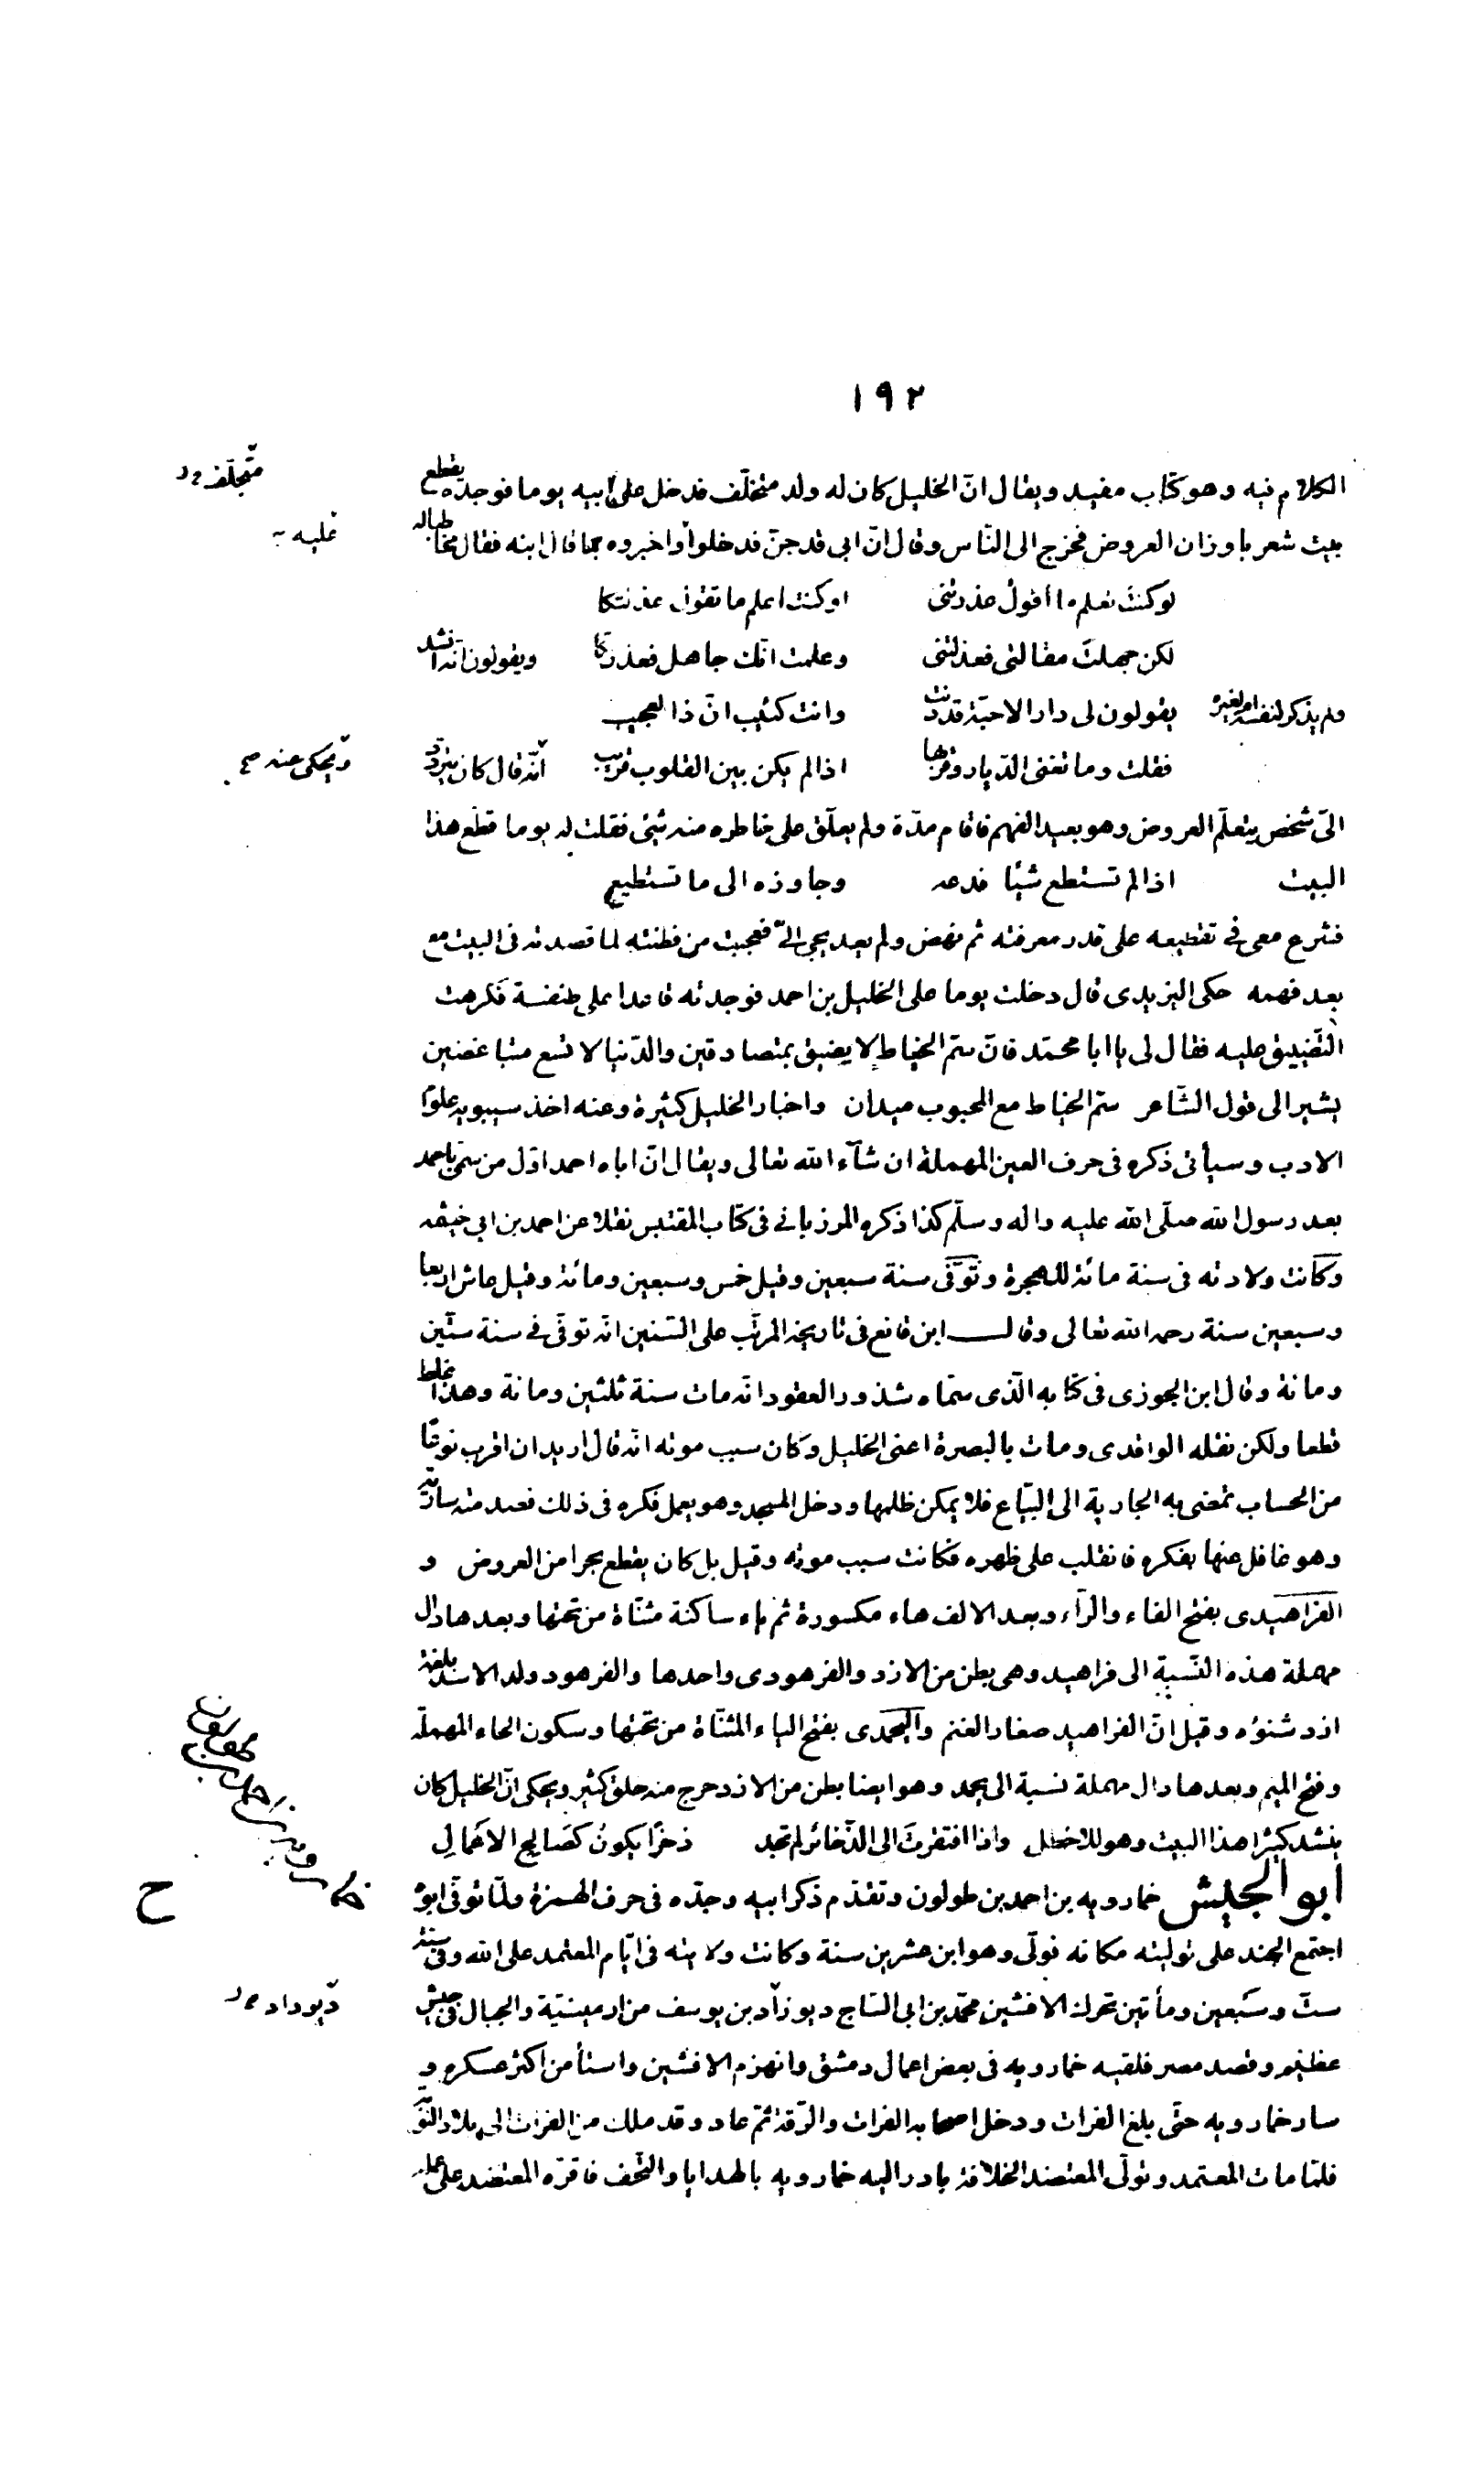 ١٩٢
الكلام فيه وهو كتاب مفيد ويقال انّ الخليل كان له ولد متخلّف فدخل على ابيه يوما فوجده يقطع
متجلّف
بيت شعر باوزان العروض فخرج الى النّاس وقال انّ ابى قد جنّ فدخلوا واخبروه بما قال ابنه فقال مخاطبا له
عليه
لوكنتَ تعلم ما أقولُ عذرتنى اوكنت اعلم ما تقول عذلتكا
لكن جهلتَ مقالتى فعذلتنى وعلمت انّك جاهل فعذرتكا ويقولون انّه انشد
ولم يذكر لنفسه ام لغيره يقولون لى دار الاحبّة قد دنت وانت كئيب انّ ذا لعجيب
فقلت وما تغنى الدّيار وقربها اذا لم يكن بين القلوب قريب انّه قال كان يتردّد
وَيحكى عنه صح
الىّ شخص يتعلّم العروض وهو بعيد الفهم فاقام مدّة ولم يعلّق على خاطره منه شئ فقلت له يوما قطّع هذا
البيت اذا لم تستطع شيئا فدعه وجاوزه الى ما تستطيع
فشرع معى فى تقطيعه على قدر معرفته ثم نهض ولم يعد يجى الىّ فعجبت من فطنته لما قصدته فى البيت مع
بعد فهمه حكى اليزيدى قال دخلت يوما على الخليل بن احمد فوجدته قاعدا على طنفسة فكرهت
التّضييق عليه فقال لى يا ابا محمّد فانّ سمّ الخياط لا يضيق بمتصادقين والدّنيا لا تسع متباغضين
يشير الى قول الشّاعر سمّ الخياط مع المحبوب ميدان واخبار الخليل كثيرة وعنه اخذ سيبويه علوم
الادب وسيأتى ذكره فى حرف العين المهملة ان شآء الله تعالى ويقال انّ اباه احمد اوّل من سمّى باحمد
بعد رسول الله صلّى الله عليه واله وسلّم كذا ذكره المرزبانى فى كتاب المقتبس نقلا عن احمد بن ابى خيثمه
وكانت ولادته فى سنة مائة للهجرة وتوّفى سنة سبعين وقيل خمس وسبعين ومائة وقيل عاش اربعا
وسبعين سنة رحمه الله تعالى وقال ابن قانع فى تاريخه المرتّب على السّنين انّه توفّى فى سنة ستّين
ومائة وقال ابن الجوزى فى كتابه الّذى سمّاه شذور العقود انّه مات سنة ثلثين ومائة وهذا غلط
قطعا ولكن نقله الواقدى ومات بالبصرة اعنى الخليل وكان سبب موته انّه قال اريد ان اقرب نوعًا
من الحساب تمضى به الجارية الى البيّاع فلا يمكن ظلمها ودخل المسجد وهو يعمل فكره فى ذلك فصدمته سارية
وهو غافل عنها بفكره فانقلب على ظهره فكانت سبب موته وقيل بل كان يقطع بحرا من العروض و
الفراهيدى بفتح الفاء والرّآء وبعد الالف هاء مكسورة ثم ياء ساكنة مثنّاة من تحتها وبعدها دال
مهملة هذه النّسبة الى فراهيد وهى بطن من الازد والفرهودى واحدها والفرهود ولد الاسد بلغة
ازد شنؤه وقيل انّ الفراهيد صغار الغنم واليحمدى بفتح الياء المثنّاة من تحتها وسكون الحاء المهملة
وفتح الميم وبعدها دال مهملة نسبة الى يحمد وهو ايضا بطن من الازد خرج منه خلق كثير ويحكى انّ الخليل كان
ينشد كثيرا هذا البيت وهو للاخطل واذا افتقرتَ الى الذّخائر لم تجد ذخرًا يكونُ كصَالِحِ الاعَمالِ
أبو الجيش خمارويه بن احمد بن طولون وتقدّم ذكر ابيه وجدّه فى حرف الهمزة ولمّا توفّى ابوه
ح
اجتمع الجند على توليته مكانه فولّى وهو ابن عشرين سنة وكانت ولايته فى ايّام المعتمد على الله وفى سنة
ستّ وسَبعين ومأتين تحرك الافشين محمّد بن ابى السّاج ديوزآد بن يوسف من ارمينيّة والجبال فى جيش
دَيوداد
عظيم وقصد مصر فلقيه خمارويه فى بعض اعمال دمشق وانهزم الافشين واستأمن اكثر عسكره و
سار خمارويه حتّى بلغ الفرات ودخل اصحابه الفرات والرّقة ثمّ عاد وقد ملك من الفرات الى بلاد النّوبة
فلمّا مات المعتمد وتولّى المعتضد الخلافة بادر اليه خمارويه بالهدايا والتّحف فاقرّه المعتضد على عمله